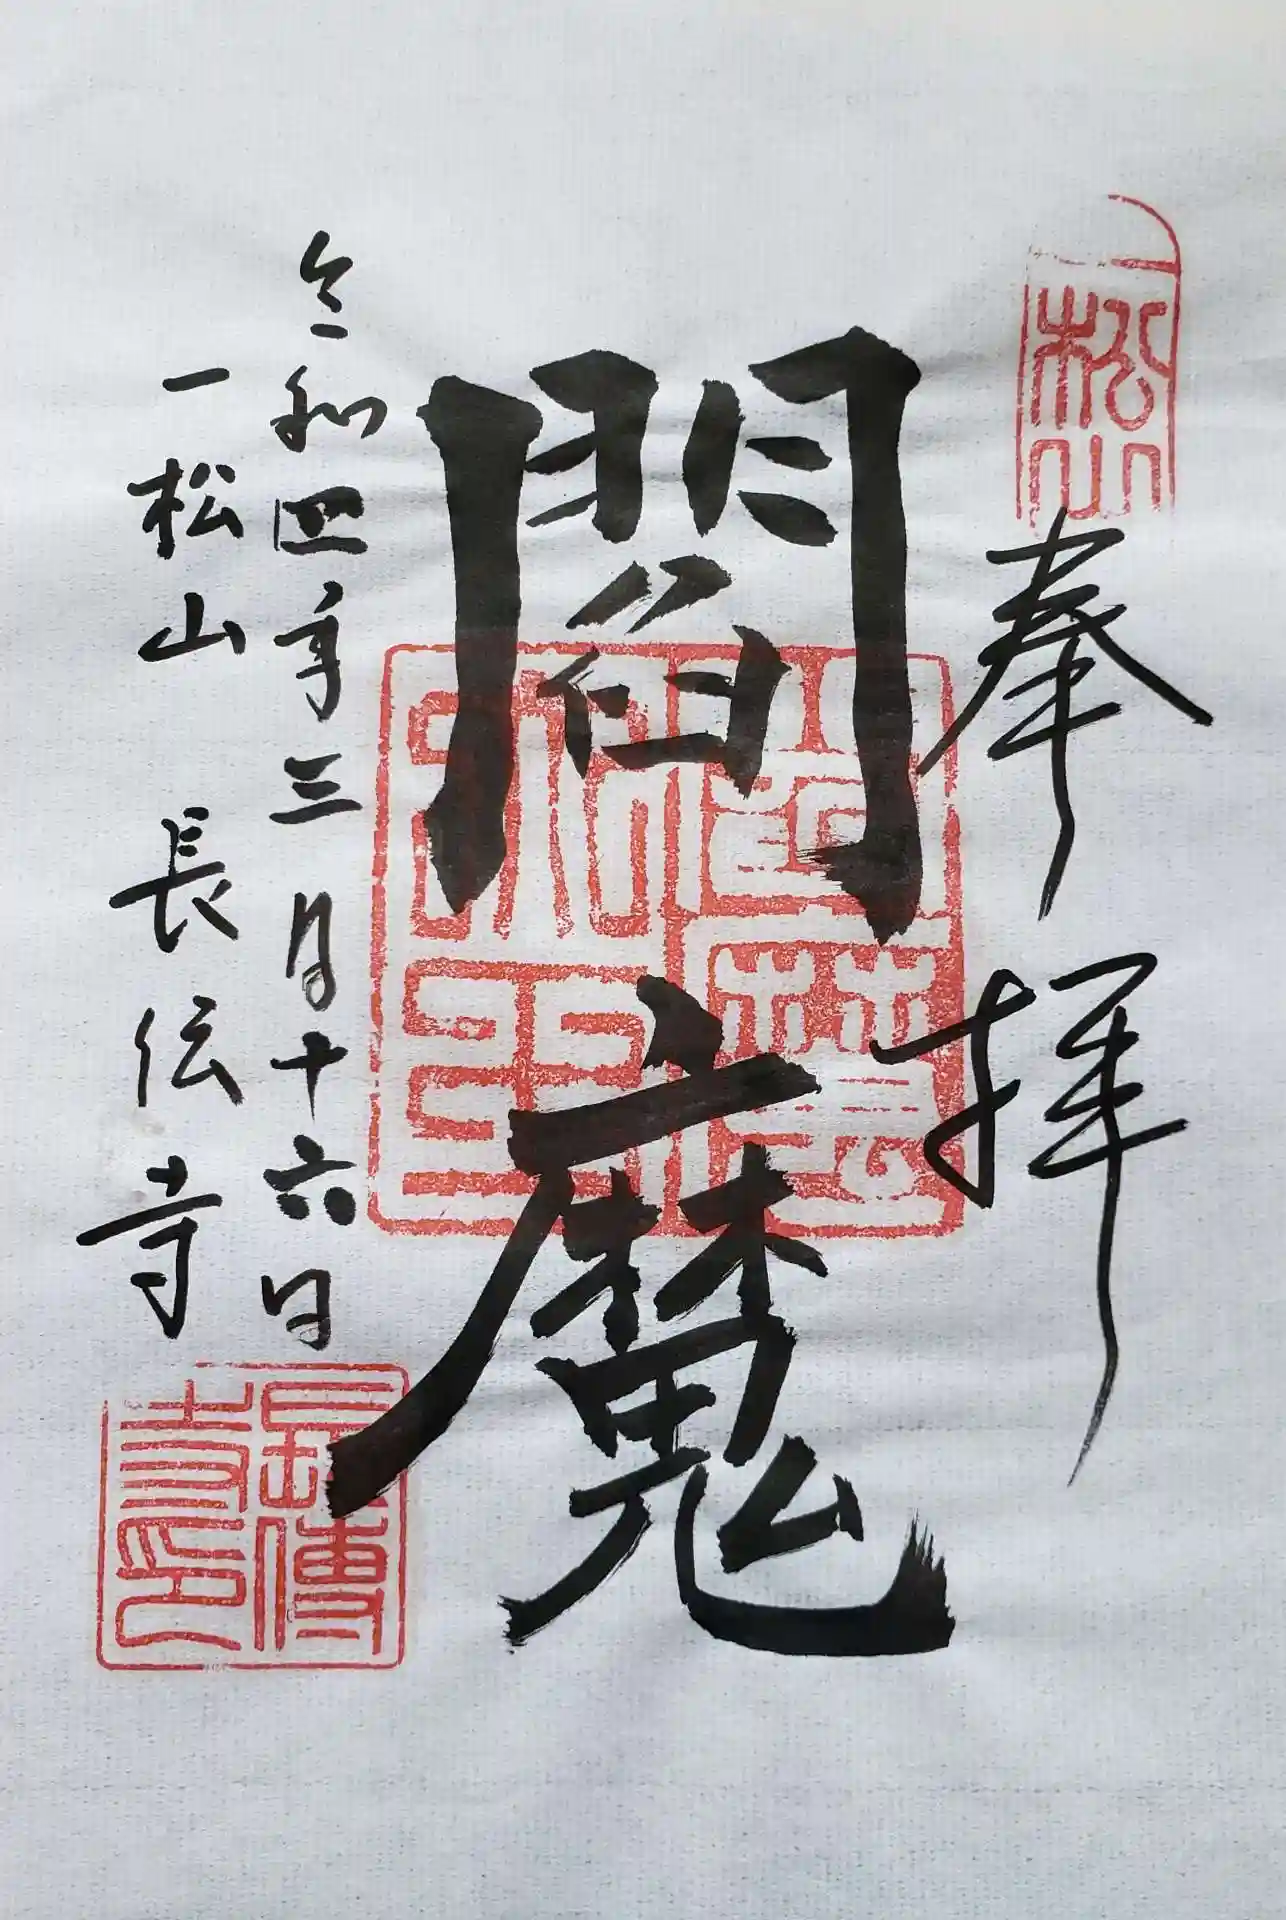 一松山
奉拝
閻魔
令和四年三月十六日
一松山 長伝寺
長傳寺印